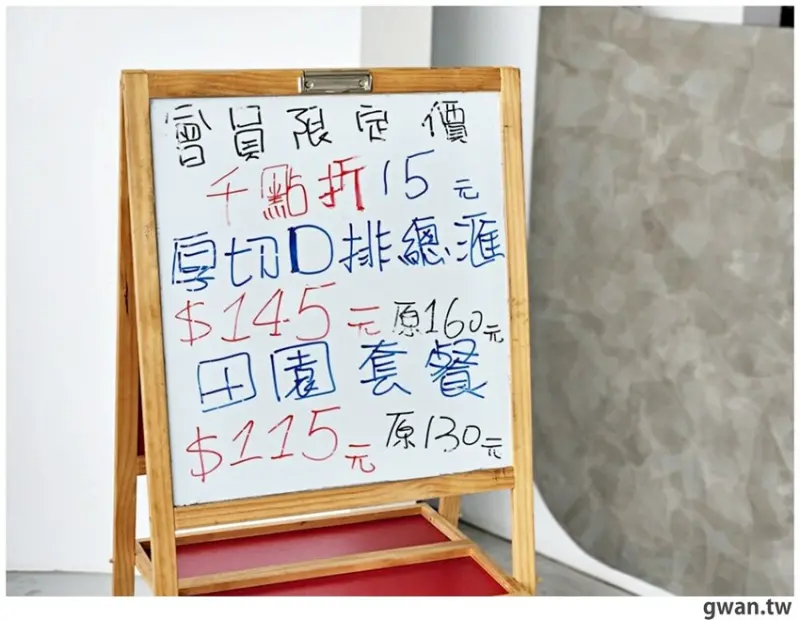 會員限定價
千點折15元
厚切D排總滙
$145元 原160元
田園套餐
$115元 原130元
gwan.tw